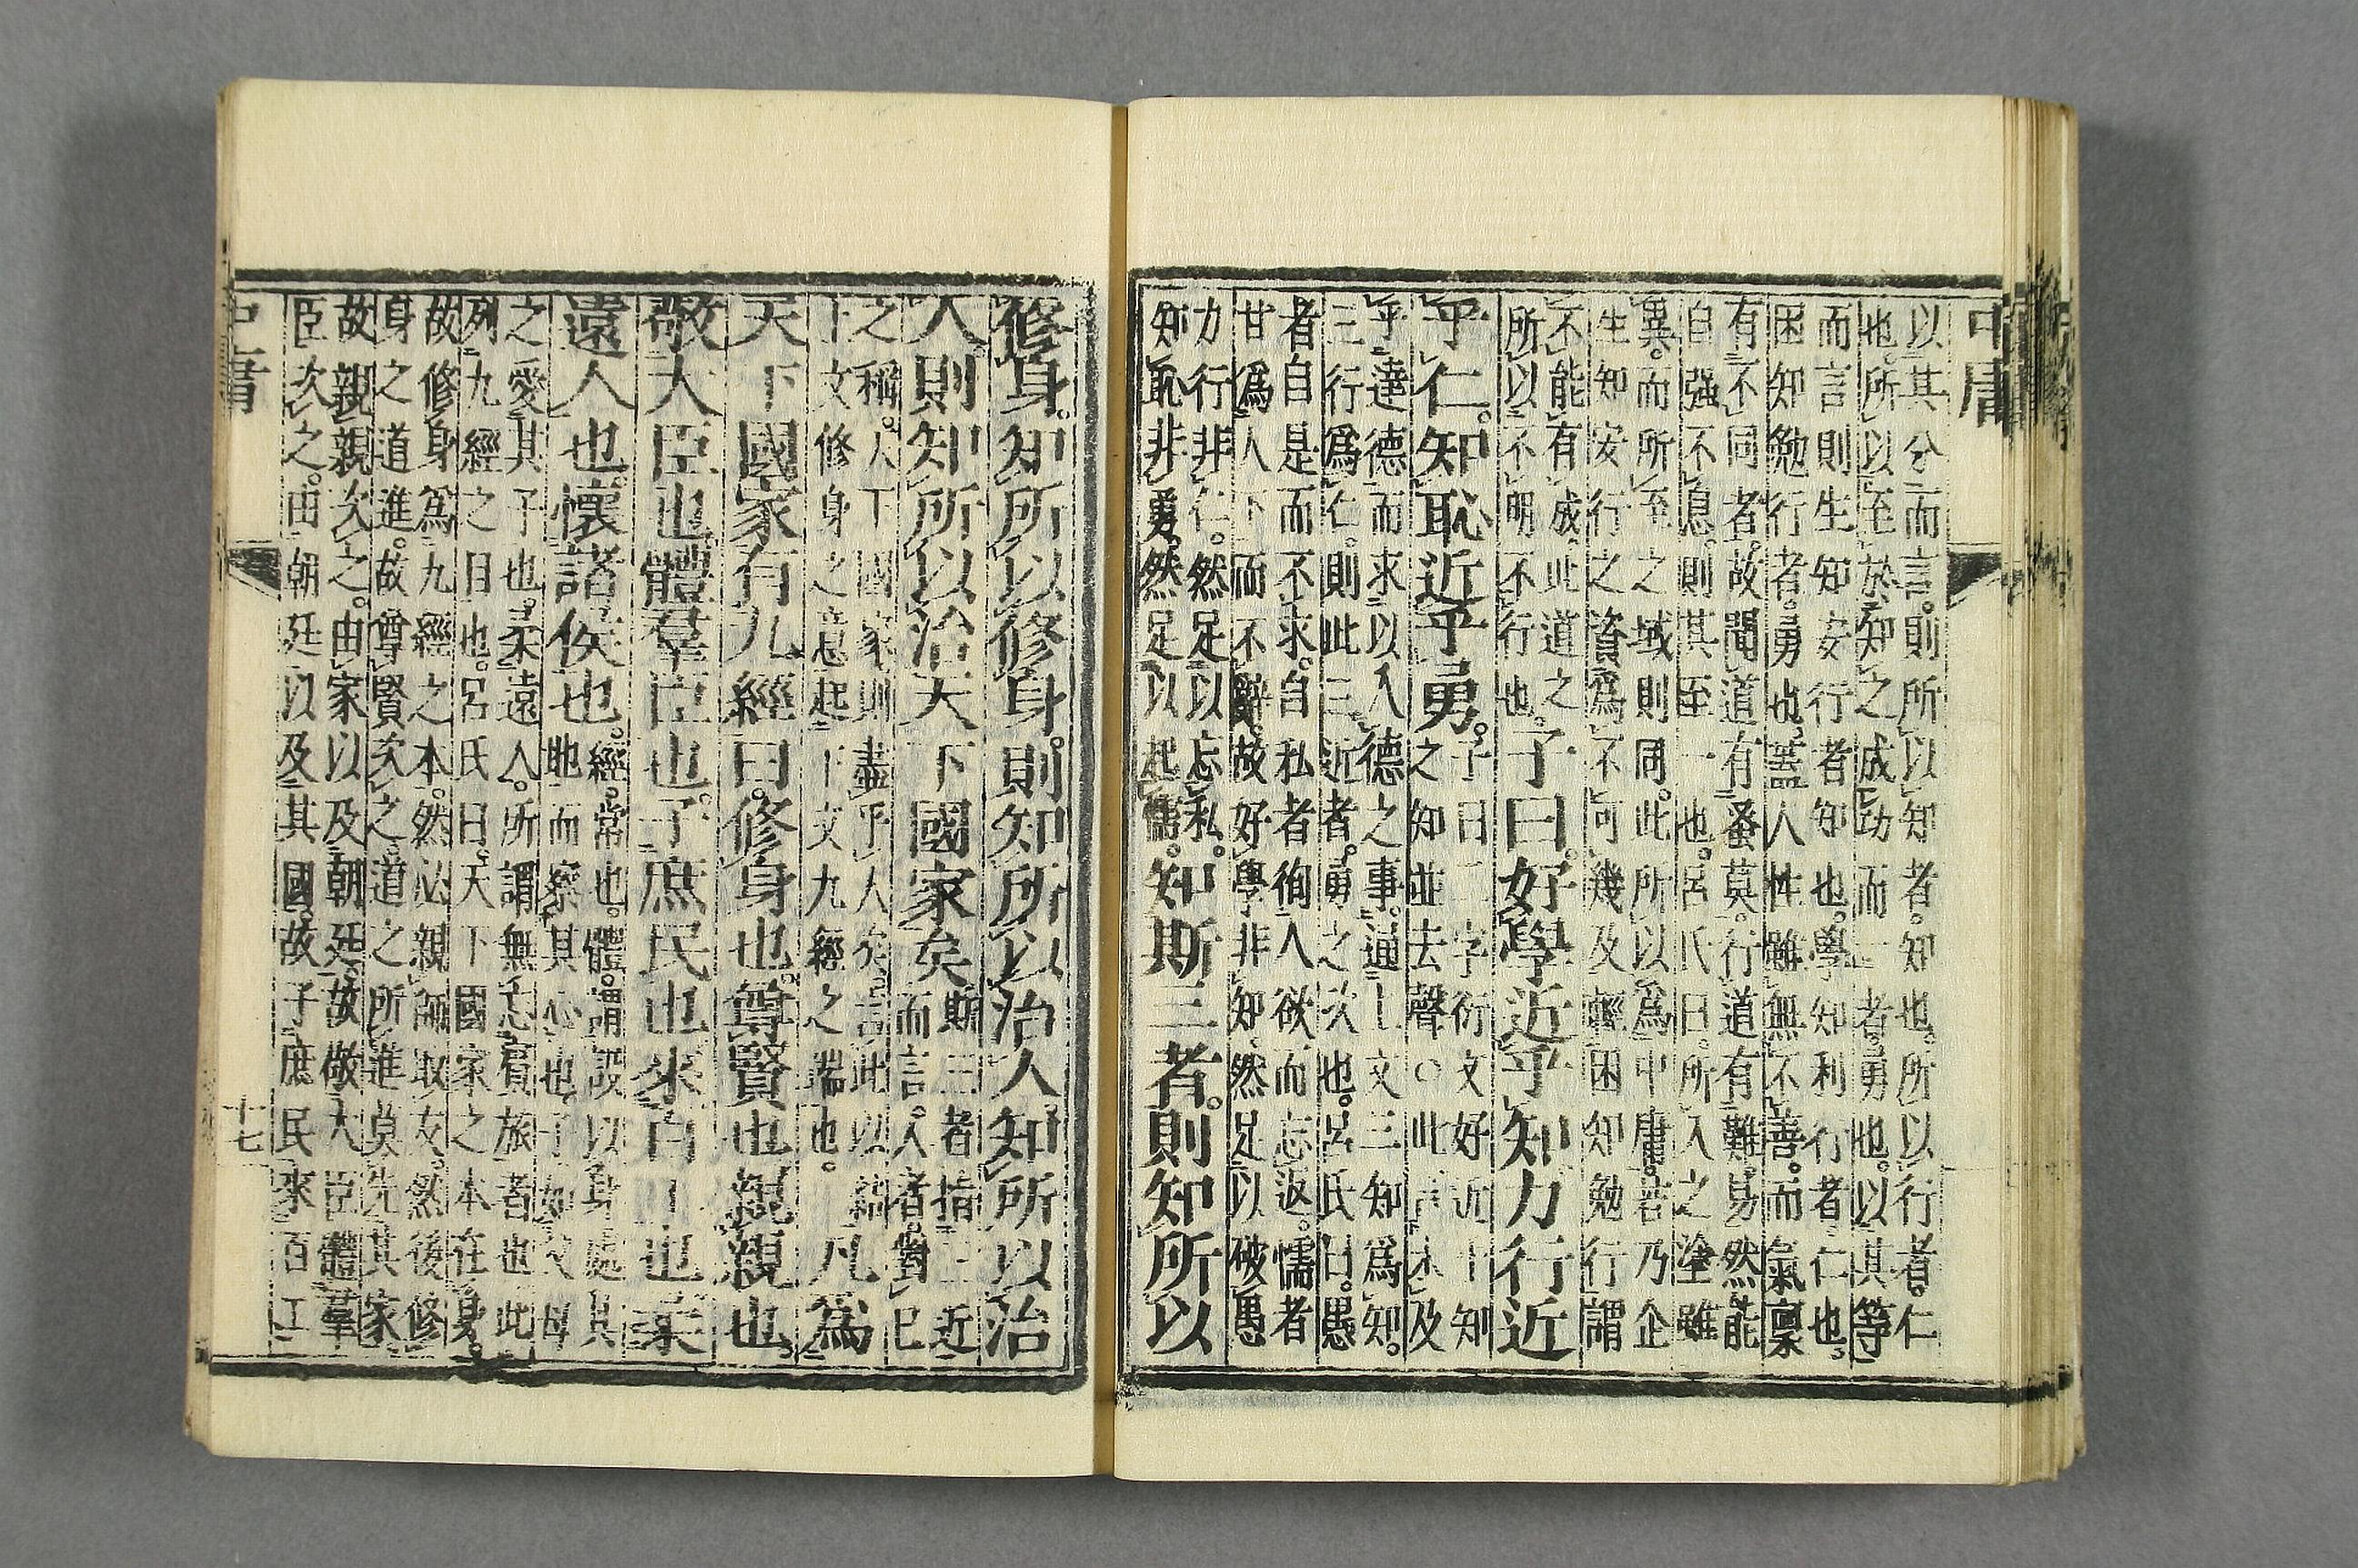 中庸
以其分而言。則所以知者。知也。所以行者。仁
也。所以至於知之成功而一者。勇也。以其等
而言則生知安行者知也。學知利行者仁也。
困知勉行者。勇也。蓋人性雖無不善。而氣稟
有不同者。故聞道有蚤莫。行道有難易。然能
自強不息。則其至一也。呂氏曰。所入之塗雖
異。而所至之域則同。此所以為中庸。若乃企
生知安行之資為不可幾及輕困知勉行謂
不能有成。此道之
所以不明不行也。
子曰。好學近乎知力行近
乎仁。知恥近乎勇。
子曰二字衍文好近乎知
之知並去聲。○此言未及
乎達德而求以入德之事。通上文三知為知。
三行為仁。則此三近者。勇之次也。呂氏曰。愚
者自是而不求。自私者徇人欲而忘返。懦者
甘為人下而不辭。故好學非知。然足以破愚
力行非仁。然足以忘私。
知恥非勇。然足以起懦。
知斯三者。則知所以
修身。知所以修身。則知所以治人知所以治
人。則知所以治天下國家矣
斯三者指三近
而言。人者。對己
之稱。天下國家則盡乎人矣。言此以結
上文修身之意起下文九經之端也。
凡為
天下國家有九經曰。修身也。尊賢也親親也。
敬大臣也體羣臣也。子庶民也來百工也柔
遠人也。懷諸侯也。
經。常也。體。謂設以身處其
地而察其心也。子如父母
之愛其子也。柔遠人。所謂無忘賓旅者也此
列九經之目也。呂氏曰。天下國家之本在身。
故修身為九經之本。然必親師取友。然後修
身之道進。故尊賢次之。道之所進莫先其家
故親親次之。由家以及朝廷。故敬大臣體羣
臣次之。由朝廷以及其國。故子庶民來百工
中庸
十七